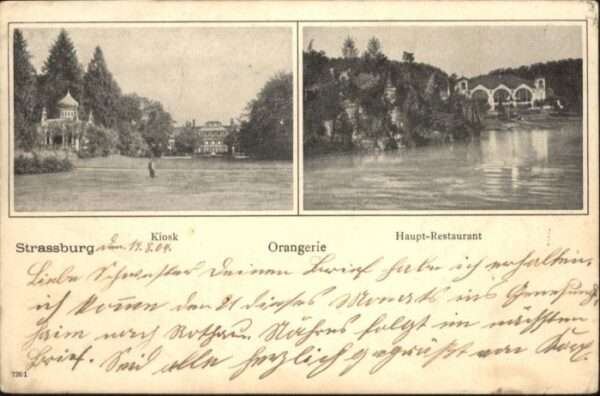 Kiosk
Haupt-Restaurant
Strassburg den 19.8.04.
Orangerie
Liebe Schwester Deinen Brief habe ich erhalten,
ich komme den 21 dieses Monats ins Genesung
haim nach Rothau Nähres folgt im nächsten
Brief. Seid alle herzlich gegrüßt von